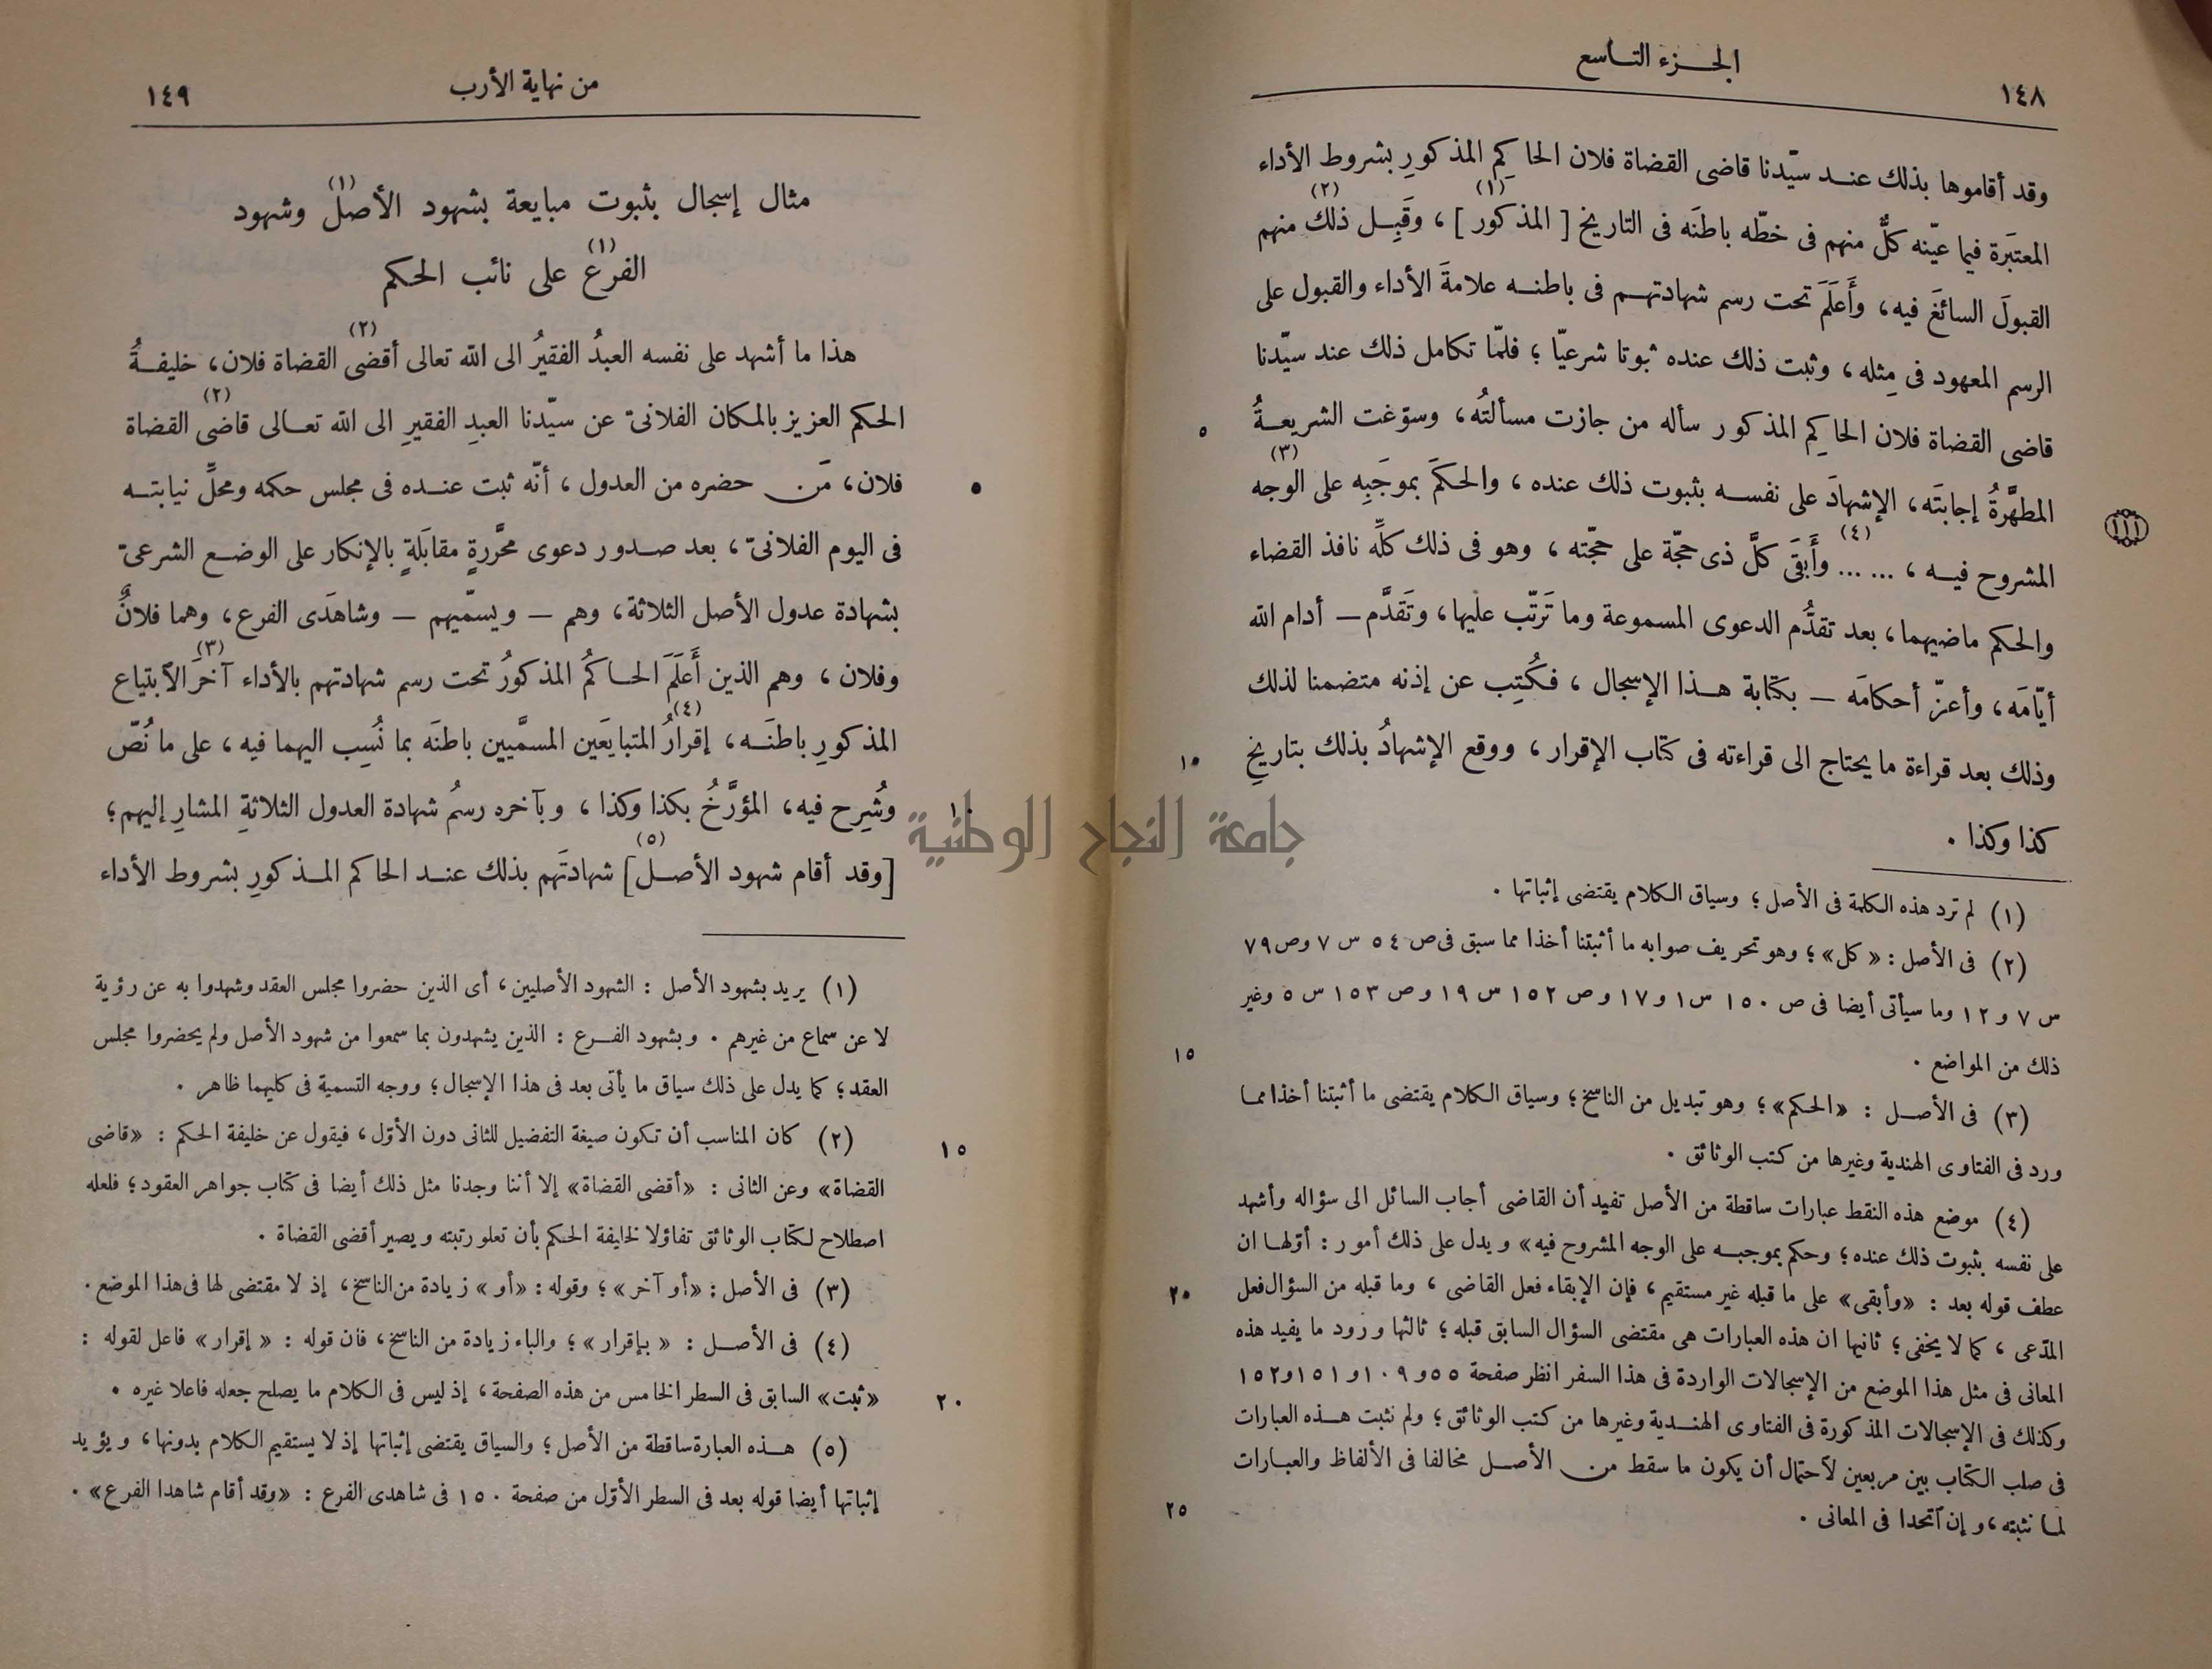 الجزء التاسع
١٤٨
وقد أقاموها بذلك عند سيّدنا قاضى القضاة فلان الحاكِم المذكورِ بشروط الأداء
المعتبَرة فيما عيّنه كلٌّ منهم فى خطّه باطنَه فى التاريخ [ المذكور (١) ] ، وقَبِل ذلك (٢) منهم
القبولَ السائغَ فيه، وأَعلَمَ تحت رسم شهادتهم فى باطنه علامةَ الأداء والقبول على
الرسم المعهود فى مِثله، وثبت ذلك عنده ثبوتا شرعيّا ؛ فلمّا تكامل ذلك عند سيّدنا
قاضى القضاة فلان الحاكِم المذكور سأله من جازت مسألتُه، وسوّغت الشريعةُ
٥
المطهَّرةُ إجابتَه، الإشهادَ على نفسه بثبوت ذلك عنده ، والحكمَ بموجَبِه على الوجه (٣)
المشروح فيه ، ... ... (٤) وأَبقَى كلَّ ذى حجّة على حجّته ، وهو فى ذلك كلِّه نافذ القضاء
١١١
والحكم ماضيهما، بعد تقدُّم الدعوى المسموعة وما تَرتّب عليها، وتَقدَّم — أدام الله
أيّامَه، وأعزّ أحكامَه — بكتابة هذا الإسجال ، فكُتِب عن إذنه متضمنا لذلك
وذلك بعد قراءة ما يحتاج الى قراءته فى كتاب الإقرار ، ووقع الإشهادُ بذلك بتاريخِ
١٠
كذا وكذا .
(١) لم ترد هذه الكلمة فى الأصل ؛ وسياق الكلام يقتضى إثباتها .
(٢) فى الأصل : «كل» ؛ وهو تحريف صوابه ما أثبتنا أخذا مما سبق فى ص ٥٤ س ٧ وص ٧٩
س ٧ و ١٢ وما سيأتى أيضا فى ص ١٥٠ س ١ و ١٧ و ص ١٥٢ س ١٩ و ص ١٥٣ س ٥ وغير
ذلك من المواضع .
١٥
(٣) فى الأصل : «الحكم» ؛ وهو تبديل من الناسخ ؛ وسياق الكلام يقتضى ما أثبتنا أخذا مما
ورد فى الفتاوى الهندية وغيرها من كتب الوثائق .
(٤) موضع هذه النقط عبارات ساقطة من الأصل تفيد أن القاضى أجاب السائل الى سؤاله وأشهد
على نفسه بثبوت ذلك عنده ؛ وحكم بموجبه على الوجه المشروح فيه» ويدل على ذلك أمور : أوّلها ان
عطف قوله بعد : «وأبقى» على ما قبله غير مستقيم ، فإن الإبقاء فعل القاضى ، وما قبله من السؤال فعل
٢٠
المدّعى ، كما لا يخفى ؛ ثانيها ان هذه العبارات هى مقتضى السؤال السابق قبله ؛ ثالثها ورود ما يفيد هذه
المعانى فى مثل هذا الموضع من الإسجالات الواردة فى هذا السفر انظر صفحة ٥٥ و ١٠٩ و ١٥١ و ١٥٢
وكذلك فى الإسجالات المذكورة فى الفتاوى الهندية وغيرها من كتب الوثائق ؛ ولم نثبت هذه العبارات
فى صلب الكتاب بين مربعين لاحتمال أن يكون ما سقط من الأصل مخالفا فى الألفاظ والعبارات
لما نثبته ، وإن ٱتحدا فى المعانى .
٢٥
من نهاية الأرب
١٤٩
مثال إسجال بثبوت مبايعة بشهود الأصل (١) وشهود
الفرع (١) على نائب الحكم
هذا ما أشهد على نفسه العبدُ الفقيرُ الى الله تعالى أقضى (٢) القضاة فلان، خليفةُ
الحكم العزيز بالمكان الفلانىّ عن سيّدنا العبدِ الفقيرِ الى الله تعالى قاضى (٢) القضاة
فلان، مَن حضره من العدول ، أنّه ثبت عنده فى مجلس حكمه ومحلِّ نيابته
٥
فى اليوم الفلانىّ ، بعد صدور دعوى محرَّرةٍ مقابَلةٍ بالإنكار على الوضع الشرعىّ
بشهادة عدول الأصل الثلاثة، وهم — ويسمّيهم — وشاهدَى الفرع، وهما فلانٌ
وفلان ، وهم الذين أَعلَمَ الحاكمُ المذكورُ تحت رسم شهادتهم بالأداء آخرَ (٣) الٱبتياع
المذكورِ باطنَه، إقرارُ (٤) المتبايعَين المسمَّيين باطنَه بما نُسِب اليهما فيه، على ما نُصّ
وشُرِح فيه، المؤرَّخُ بكذا وكذا ، وبآخره رسمُ شهادة العدول الثلاثةِ المشارِ إليهم؛
١٠
[وقد أقام شهود الأصل (٥)] شهادتَهم بذلك عند الحاكم المذكورِ بشروط الأداء
(١) يريد بشهود الأصل : الشهود الأصليين، أى الذين حضروا مجلس العقد وشهدوا به عن رؤية
لا عن سماع من غيرهم . وبشهود الفرع : الذين يشهدون بما سمعوا من شهود الأصل ولم يحضروا مجلس
العقد ؛ كما يدل على ذلك سياق ما يأتى بعد فى هذا الإسجال ؛ ووجه التسمية فى كليهما ظاهر .
(٢) كان المناسب أن تكون صيغة التفضيل للثانى دون الأوّل ، فيقول عن خليفة الحكم : «قاضى
١٥
القضاة» وعن الثانى : «أقضى القضاة» إلا أننا وجدنا مثل ذلك أيضا فى كتاب جواهر العقود ؛ فلعله
اصطلاح لكتاب الوثائق تفاؤلا لخليفة الحكم بأن تعلو رتبته ويصير أقضى القضاة .
(٣) فى الأصل : «أو آخر» ؛ وقوله : «أو» زيادة من الناسخ، إذ لا مقتضى لها فى هذا الموضع .
(٤) فى الأصل : «بإقرار» ؛ والباء زيادة من الناسخ، فان قوله : «إقرار» فاعل لقوله :
«ثبت» السابق فى السطر الخامس من هذه الصفحة ، إذ ليس فى الكلام ما يصلح جعله فاعلا غيره .
٢٠
(٥) هذه العبارة ساقطة من الأصل ؛ والسياق يقتضى إثباتها إذ لا يستقيم الكلام بدونها ، ويؤيد
إثباتها أيضا قوله بعد فى السطر الأوّل من صفحة ١٥٠ فى شاهدى الفرع : «وقد أقام شاهدا الفرع» .
جامعة النجاح الوطنية